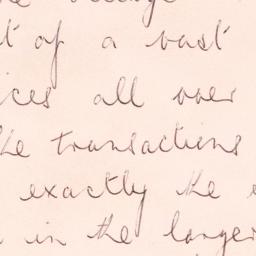 t of a vast
ices all over
the transactions
exactly the
in the larger